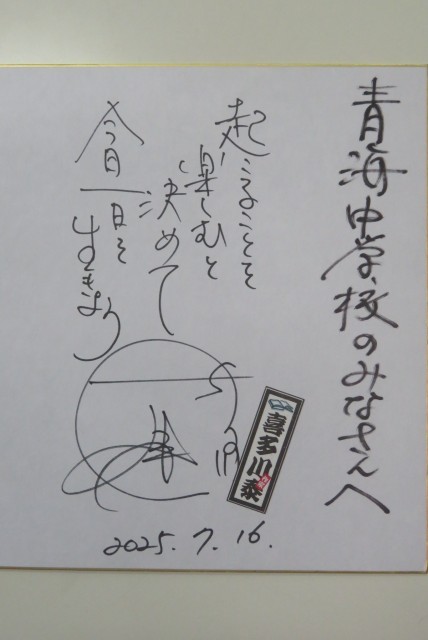 青海中学校のみなさんへ
起こることを
楽しむと
決めて
今日一日を
生きよう
喜多川泰
2025. 7. 16.